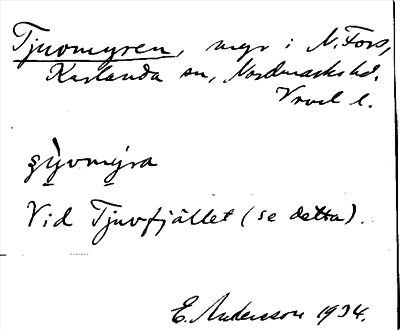 Tjuvmyren, myr i N. Fors,
Karlanda sn, Nordmarks hd.
Vrml l.
çỳ̱vmy̱ra
Vid Tjuvfjället (se detta).
E. Andersson 1934.